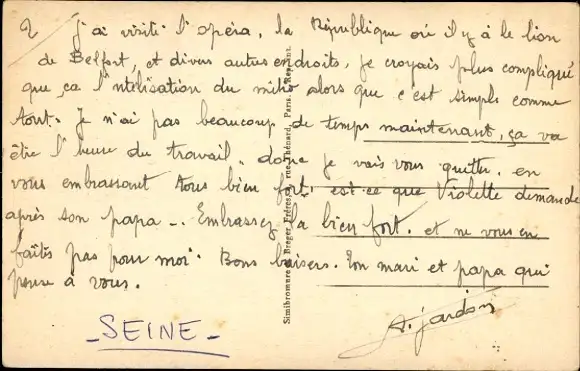 2 J'ai visité l'opéra, la République où il y à le lion
de Belfort, et divers autres endroits, je croyais plus compliqué
que ça l'utilisation du métro alors que c'est simple comme
tout. Je n'ai pas beaucoup de temps maintenant, ça va
être l'heure du travail, donc je vais vous quitter, en
vous embrassant tous bien fort, est-ce que Violette demande
après son papa... Embrassez la bien fort, et ne vous en
faîtes pas pour moi. Bons baisers. Ton mari et papa qui
pense à vous.
A. Jardon
-SEINE-
Simibromure A. Breger Frères, rue Thénard, Paris.